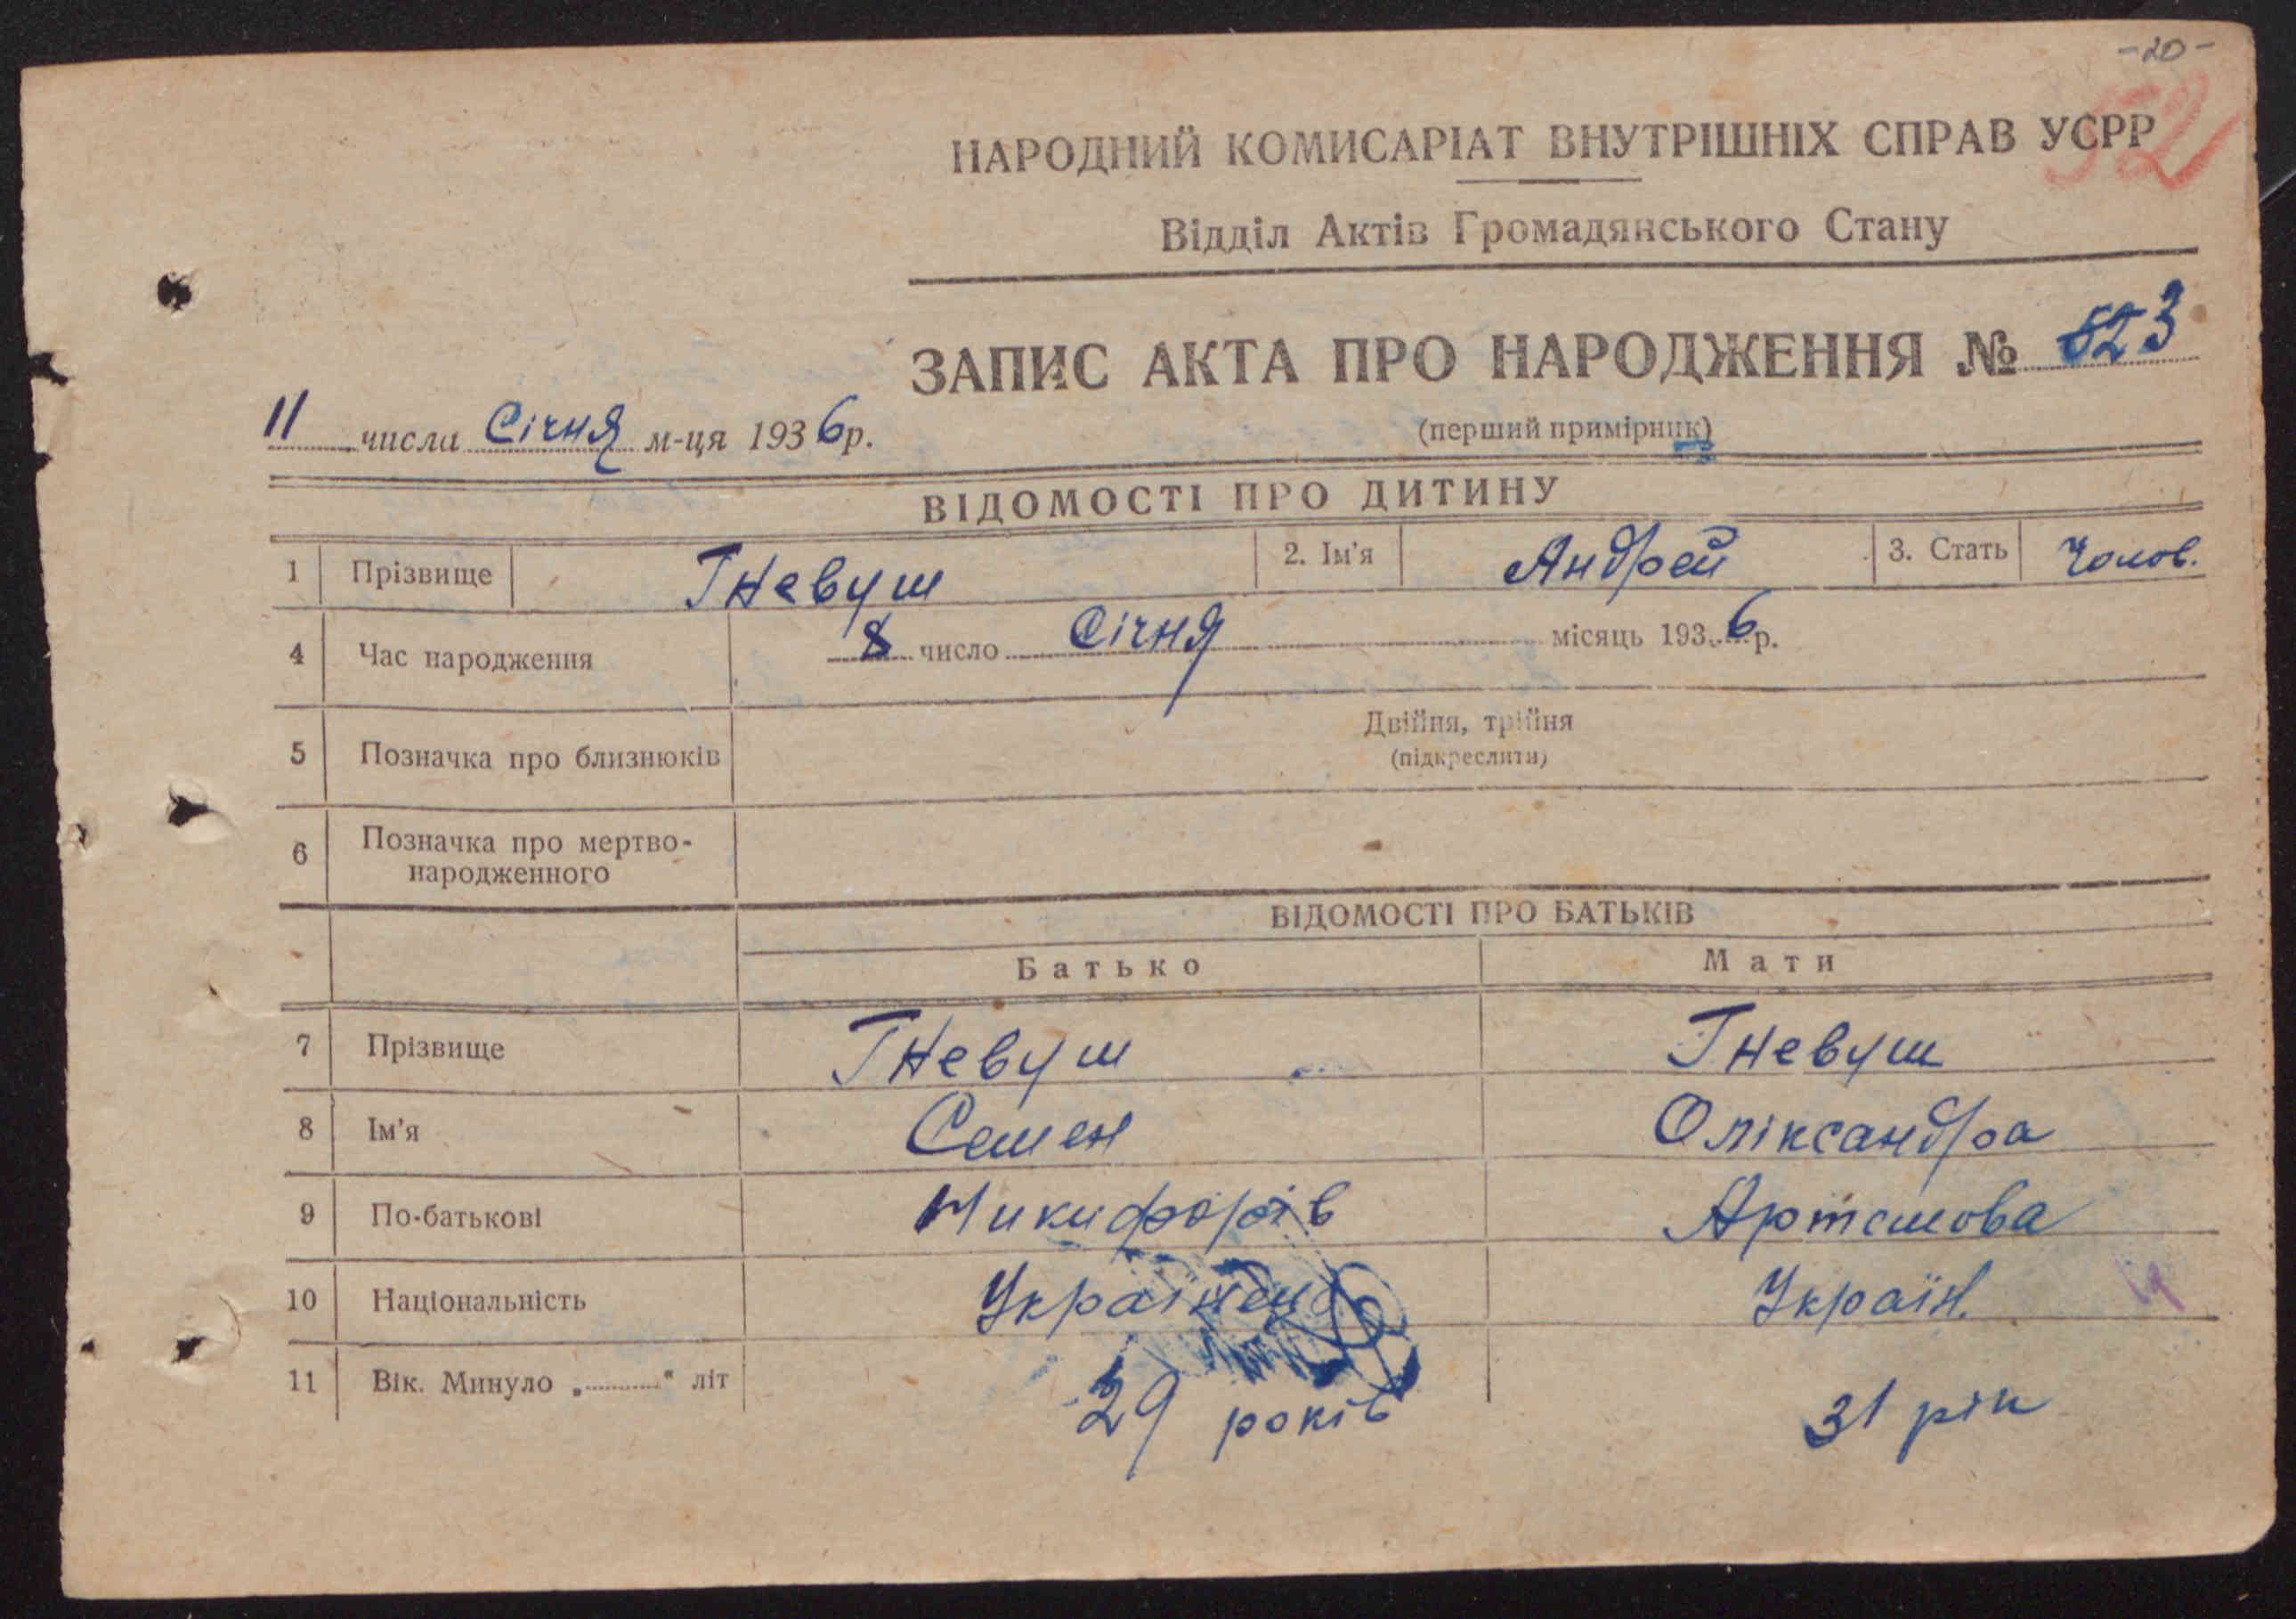 -20-
52
НАРОДНИЙ КОМИСАРІАТ ВНУТРІШНІХ СПРАВ УСРР
Відділ Актів Громадянського Стану
ЗАПИС АКТА ПРО НАРОДЖЕННЯ № 523
11 числа Січня м-ця 1936 р.
(перший примірник)
ВІДОМОСТІ ПРО ДИТИНУ
1 Прізвище Гневуш 2. Ім'я Андрей 3. Стать Чолов.
4 Час народження 8 число Січня місяць 1936 р.
5 Позначка про близнюків Двійня, трійня
(підкреслити)
6 Позначка про мертво-
народженного
ВІДОМОСТІ ПРО БАТЬКІВ
Батько Мати
7 Прізвище Гневуш Гневуш
8 Ім'я Семен Оліксандра
9 По-батькові Никифорів Артемова
10 Національність Українец Україн.
11 Вік. Минуло „ " літ 29 років 31 рік